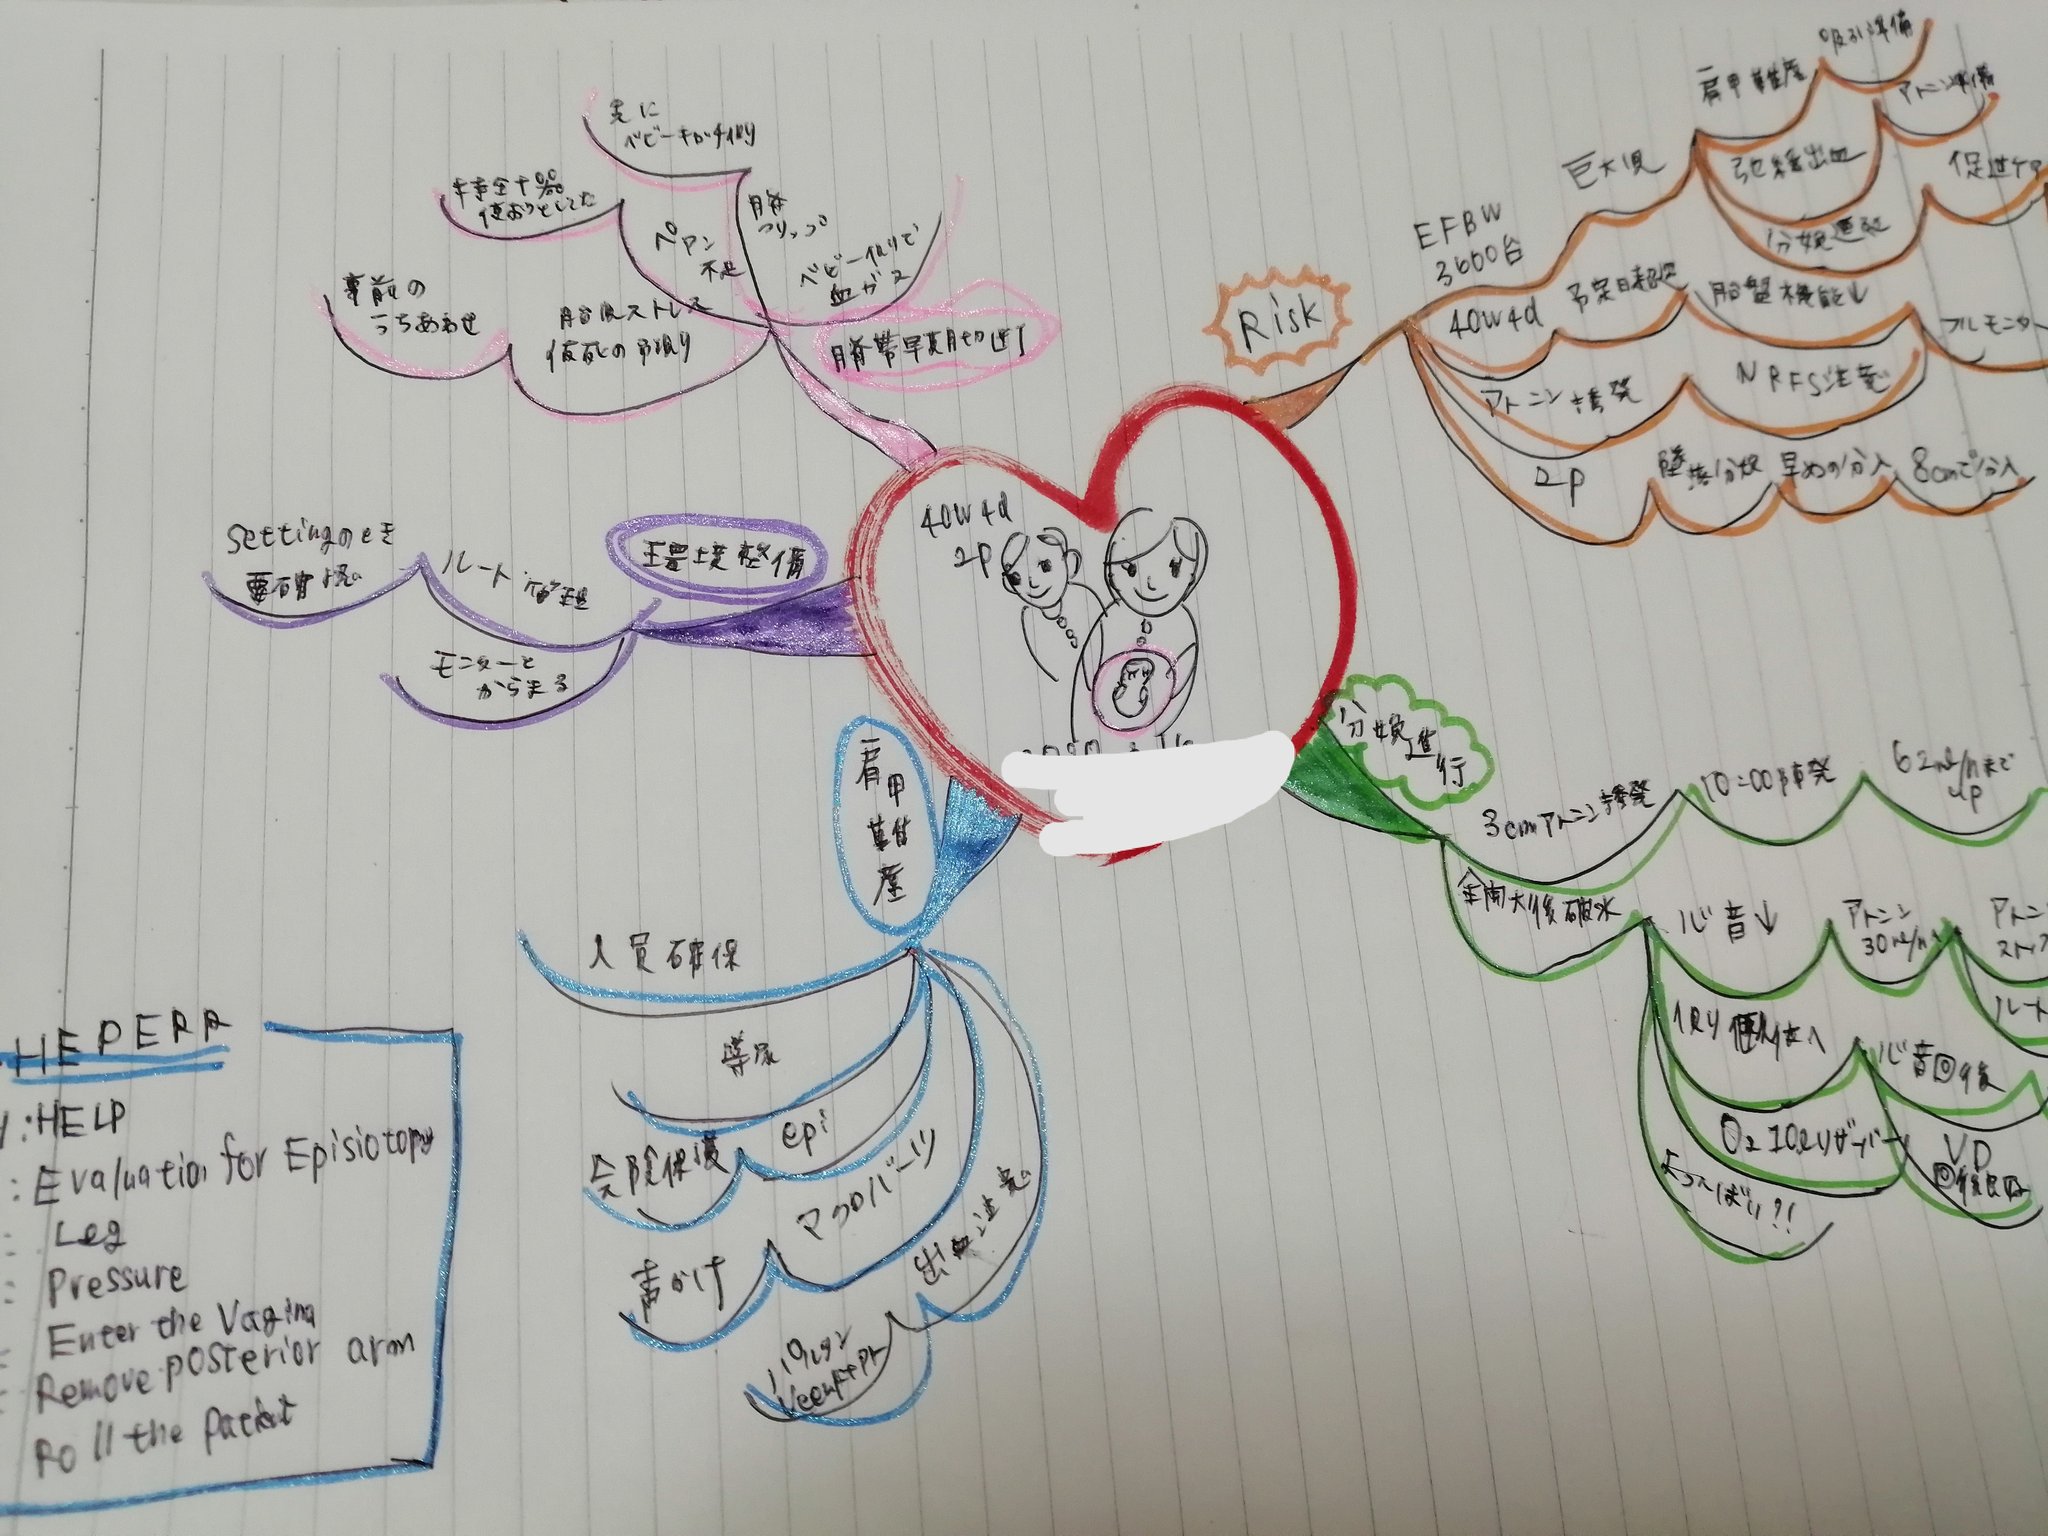 40w4d
2P
Risk
EFBW
3600台
巨大児
肩甲難産
吸引準備
弛緩出血
アトニン準備
分娩遷延
促進
40w4d
予定日超過
胎盤機能↓
フルモニター
アトニン誘発
NRFS注意
2P
墜落分娩
早めの分入
8cmで分入
分娩進行
3cmアトニン誘発
10:00誘発
62ml/hまで
up
全開大後破水
心音↓
アトニン
30ml/h
アトニン
ストップ
ルート
側臥位へ
心音回復
O2 10Lリザーバー
VD
回復良好
よつんばい?!
肩甲難産
人員確保
導尿
epi
会陰保護
マクロバーツ
声かけ
出血注意
HEPERR
:HELP
:Evaluation for Episiotomy
: Leg
: Pressure
Enter the Vagina
Remove posterior arm
Roll the
環境整備
ルート管理
settingのとき
要確認
モニターと
からまる
臍帯早期切断
先に
ベビーキがチ切り
臍
クリップ
ペアン
不足
使おうとしてた
胎児ストレス
仮死の予測
事前の
うちあわせ